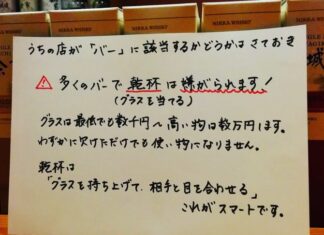 NIKKA WHISKY
NIKKA WHISKY
NIKKA WHISKY
うちの店が「バー」に該当するかどうかはさておき
多くのバーで乾杯は嫌がられます!
(グラスを当てる)
グラスは最低でも数千円〜高い物は数万円します。
わずかに欠けただけでも使い物になりません。
乾杯は
「グラスを持ち上げて、相手と目を合わせる」
これがスマートです。